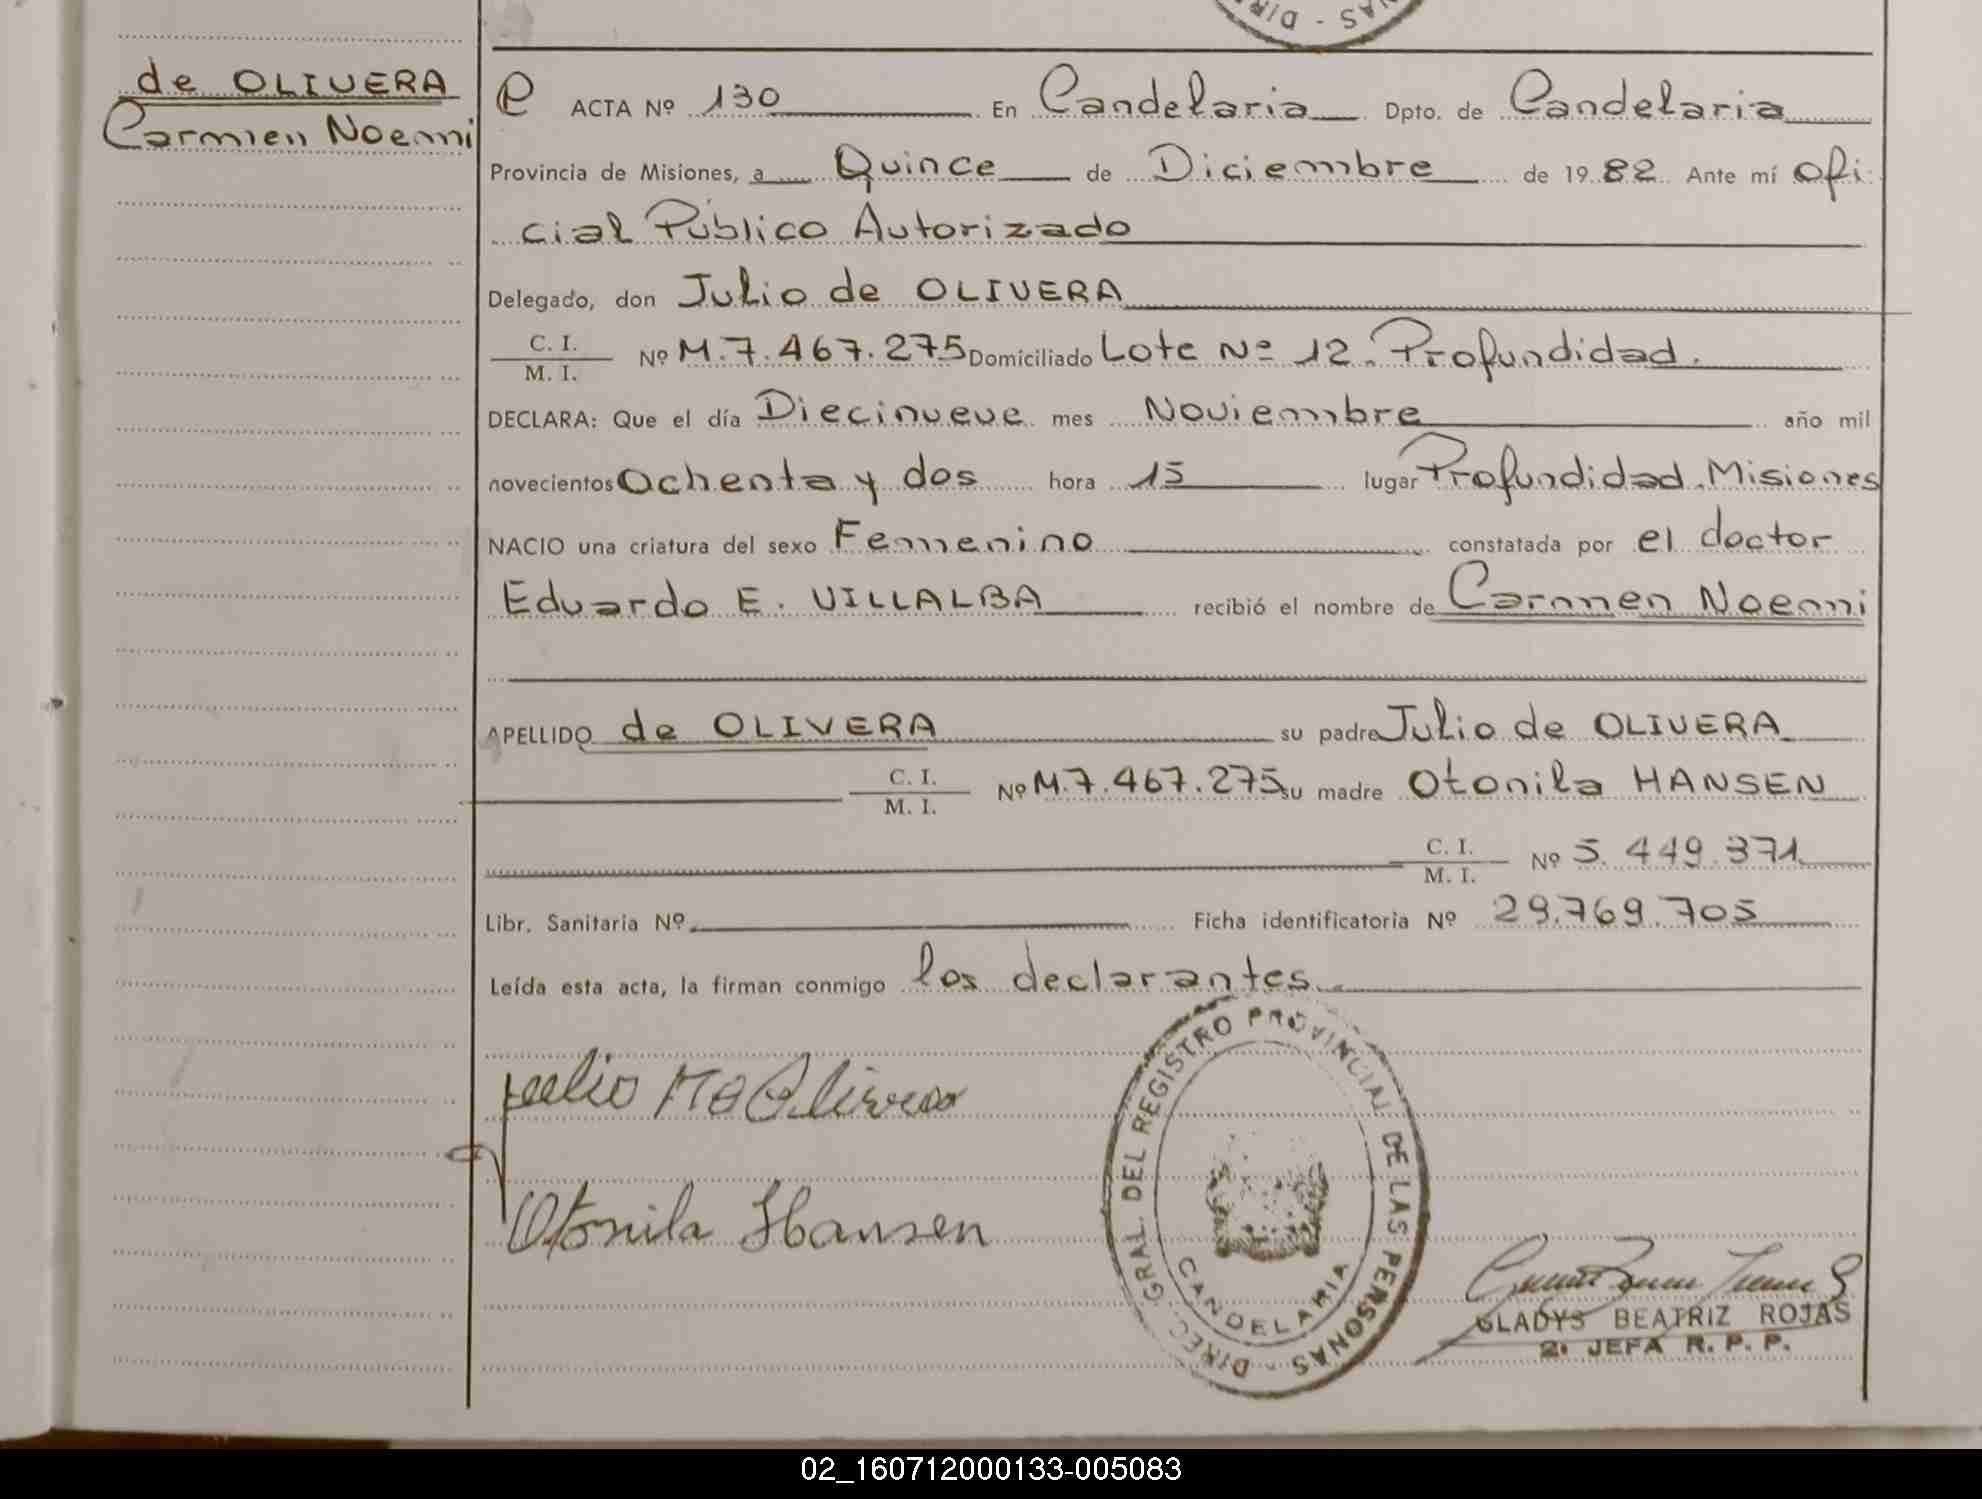 DIREC - NAS
de OLIVERA
Carmen Noemi
ACTA Nº 130 En Candelaria Dpto. de Candelaria
Provincia de Misiones, a Quince de Diciembre de 1982 Ante mí Ofi
cial Público Autorizado
Delegado, don Julio de OLIVERA
C. I.
M. I. Nº M.7.467.275 Domiciliado Lote Nº 12. Profundidad.
DECLARA: Que el día Diecinueve mes Noviembre año mil
novecientos Ochenta y dos hora 15 lugar Profundidad. Misiones
NACIO una criatura del sexo Femenino constatada por el doctor
Eduardo E. VILLALBA recibió el nombre de Carmen Noemi
APELLIDO de OLIVERA su padre Julio de OLIVERA
C. I.
M. I. Nº M.7.467.275 su madre Otonila HANSEN
C. I.
M. I. Nº 5.449.371
Libr. Sanitaria Nº Ficha identificatoria Nº 29.769.705
Leída esta acta, la firman conmigo los declarantes.
Otonila Hansen
DIREC. GRAL. DEL REGISTRO PROVINCIAL DE LAS PERSONAS -
CANDELARIA
GLADYS BEATRIZ ROJAS
2ª JEFA R. P. P.
02_160712000133-005083